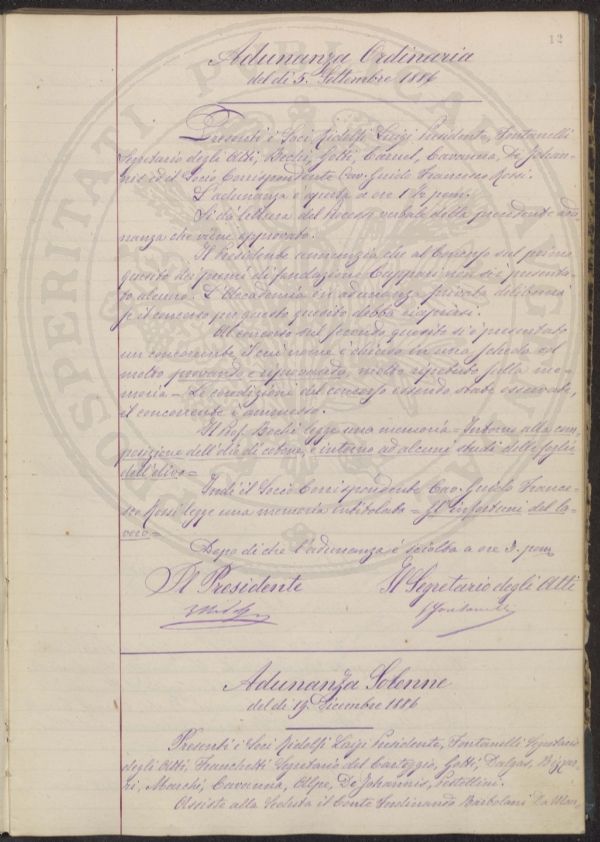 12
Adunanza Ordinaria
del dì 5. Settembre 1886
Presenti i Soci Ridolfi Luigi Presidente, Fontanelli
Segretario degli Atti, Bechi, Gotti, Caruel, Cavanna, De Johan-
nis ed il Socio Corrispondente Cav. Guido Francesco Rossi.
L'adunanza è aperta a ore 1 ½ pom.
Si dà lettura del Processo verbale della precedente adu
nanza che viene approvato.
Il Presidente annunzia che al Concorso sul primo
quesito dei premi di fondazione Cuppari non si è presenta-
to alcuno. L'Accademia in adunanza privata delibererà
se il concorso per questo quesito debba riaprirsi.
Al concorso sul secondo quesito si è presentato
un concorrente il cui nome è chiuso in una scheda col
motto provando e riprovando, motto ripetuto sulla me-
moria - Le condizioni del concorso essendo state osservate,
il concorrente è ammesso.
Il Prof. Bechi legge una memoria = Intorno alla com-
posizione dell'olio di cotone, e intorno ad alcuni studi delle foglie
dell'olivo =
Indi il Socio Corrispondente Cav. Guido France-
sco Rossi legge una memoria intitolata = Gl'infortuni del la-
voro =
Dopo di che l'adunanza è sciolta a ore 3. pom
Il Presidente Il Segretario degli Atti
L Ridolfi Fontanelli
Adunanza Solenne
del dì 19. Dicembre 1886
Presenti i Soci Ridolfi Luigi Presidente, Fontanelli Segretario
degli Atti, Franchetti Segretario del Carteggio, Gotti, Dalgas, Bizzar-
ri, Marchi, Cavanna, Alpe, De Johannis, Pestellini.
Assiste alla Seduta il Conte Ferdinando Barbolani Da Mon,
PROSPERITATI PUBLICAE AUGENDAE